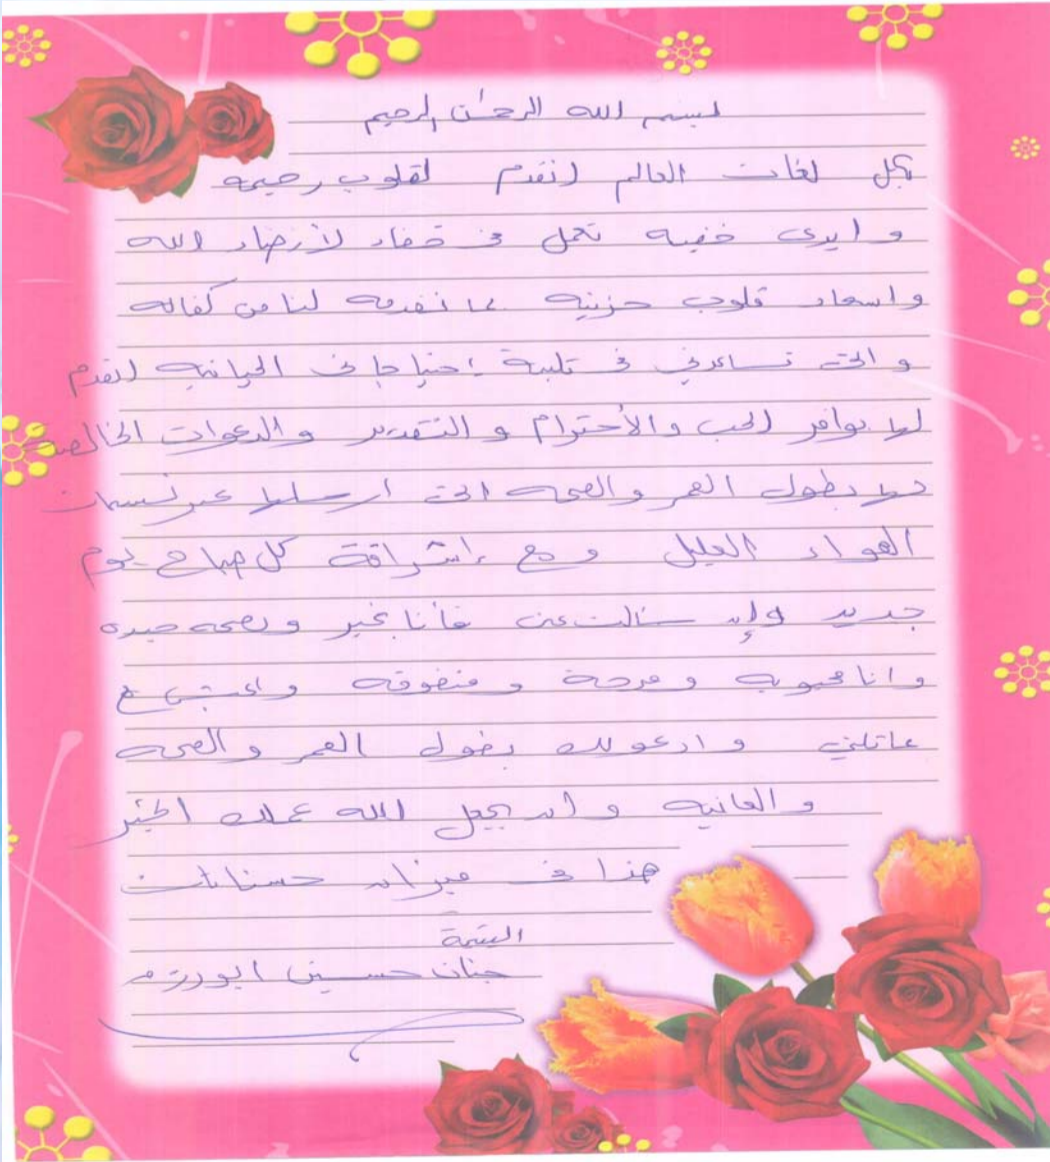 بسم الله الرحمن الرحيم
بكل لغات العالم اتقدم لقلوب رحيمه
و ايدى خفيه تعمل فى خفاء لأرضاء الله
واسعاد قلوب حزينه بما تقدمه لنا من كفاله
و التى تساعدنى فى تلبية احتياجاتى الحياتيه اتقدم
لها بوافر الحب والأحترام و التقدير والدعوات الخالصه
لها بطول العمر والصحه التى ارسلها عبر نسمات
الهواء العليل ومع إشراقة كل صباح يوم
جديد وإن سئالت عنى فأنا بخير وبصحه جيده
وانا محبوبه ومرحة ومتفوقه واعيش مع
عائلتى وادعولك بطول العمر والصحه
والعافيه وان يجعل الله عملك الخير
هذا فى ميزان حسناتك
اليتيمة
جنان حسين ابو